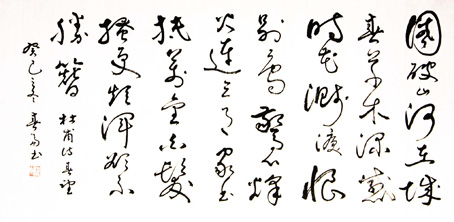 國破山河在城
春草木深感
時花濺淚恨
別鳥驚心烽
火連三月家書
抵萬金白髮
搔更短渾欲不
勝簪 杜甫詩春望
癸巳